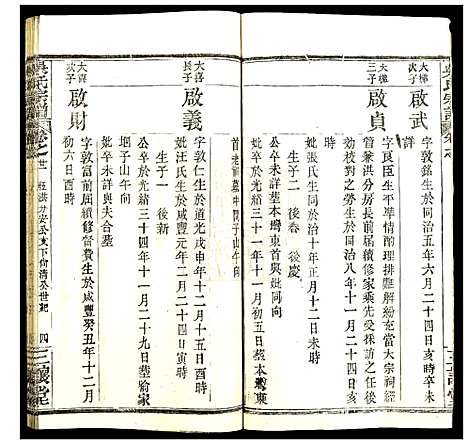 吳氏宗譜
大樺次子
啟武
字敦銘生於同治五年六月二十四日亥時卒未
詳
大樺三子
啟貞
字良臣生平準情酌理排難解紛充當大宗祠經
管兼洪分房長前屆續修家乘先受採訪之任後
効校對之勞生於同治八年十一月二十四日亥
時
妣張氏生同於治十年正月十二日未時
生子二 後春 後慶
公卒於光緒三十一年十一月初五日塟本塆東
妣卒未詳塟本塆東首與妣同向
首老祠墓中間子山午向
大喜長子
啟義
字敦仁生於道光戊申年十二月十五日酉時
妣汪氏生於咸豐元年二月二十四日寅時
生子一 後新
公卒於光緒三十四年十一月二十九日塟䉵家
垇子山午向
妣卒未詳與夫合塟
大喜次子
啟財
字敦富前屆續修督費生於咸豐癸丑年十二月
初六日酉時
吳氏宗譜
卷之
廿一
四
三讓堂